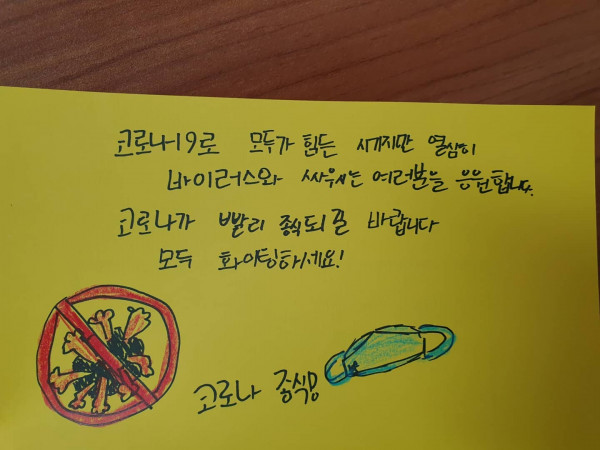 코로나19로 모두가 힘든 시기지만 열심히
바이러스와 싸워시는 여러분을 응원합니다.
코로나가 빨리 종식되길 바랍니다
모두 화이팅하세요!
코로나 종식